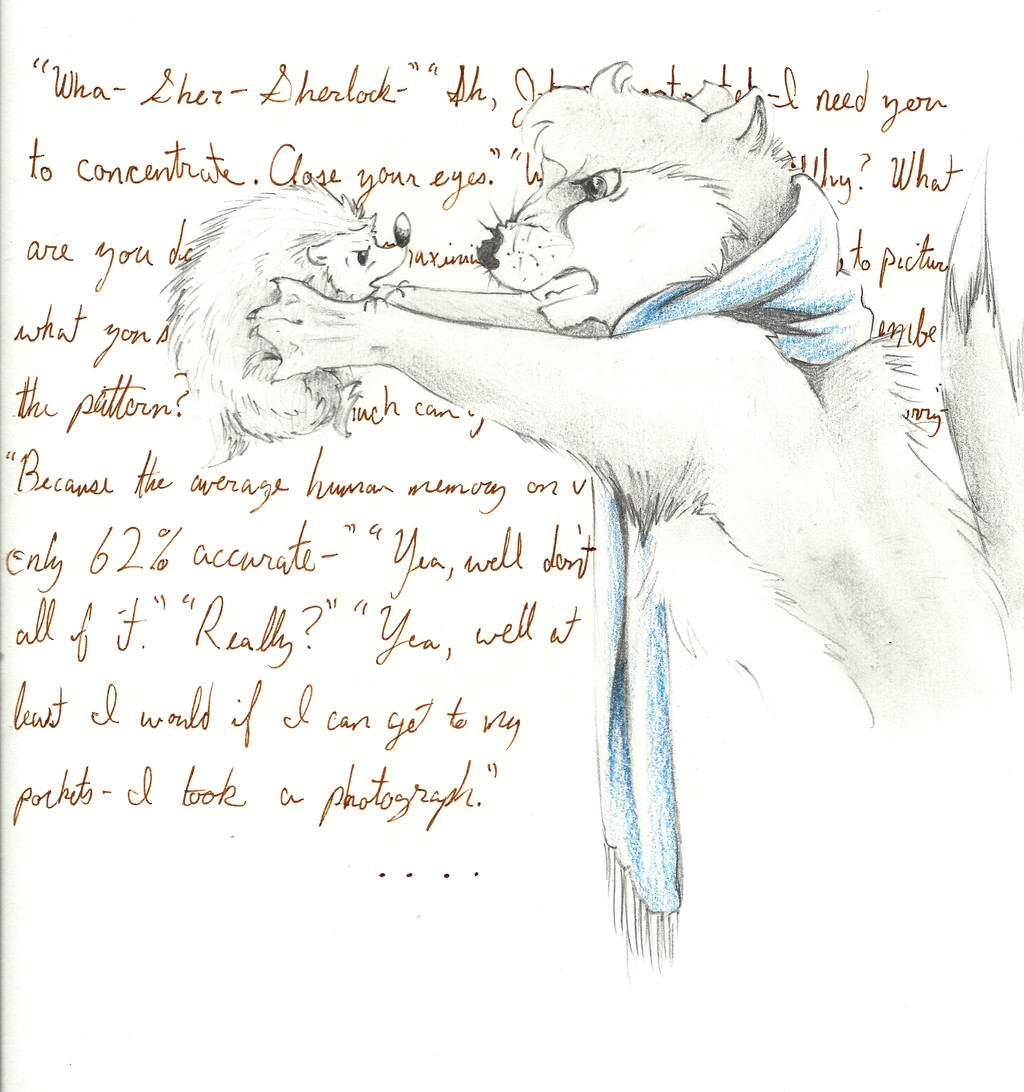 “Wha- Sher- Sherlock-” “Sh, I need you
to concentrate. Close your eyes.” “Why? What
are you to pictur
what you
the pattern? can
“Because the average human memory on v
only 62% accurate-” “Yea, well don't
all of it.” “Really?” “Yea, well at
least I would if I can get to my
pockets- I took a photograph.”
. . . .